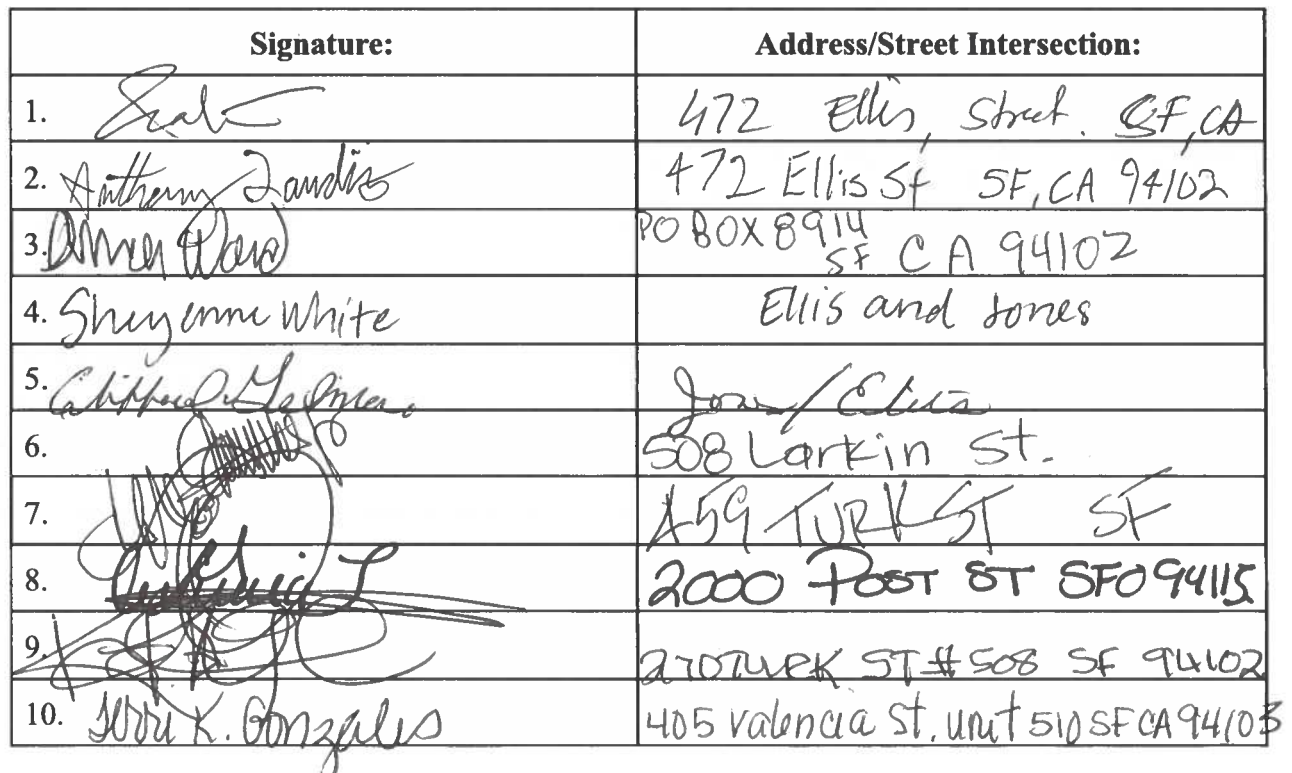 Signature: Address/Street Intersection:
1. 472 Ellis, Street. SF, CA
2. Anthony 472 Ellis St SF, CA 94102
3. Ward PO BOX 8914
SF CA 94102
4. Sheyenne White Ellis and Jones
5. Jones/Ellis
6. 508 Larkin St.
7. 459 TURK ST SF
8. 2000 POST ST SFO 94115
9. 270 TURK ST #508 SF 94102
10. Terri K. Gonzales 405 Valencia St. unit 510 SF CA 94103